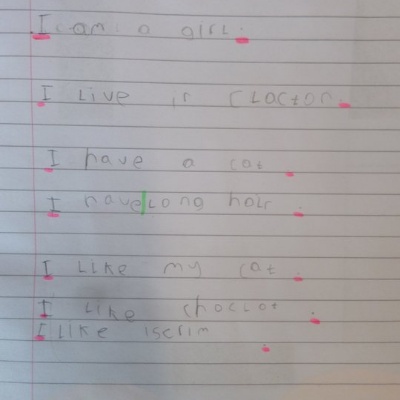 I am a girl.
I live in Clacton.
I have a cat.
I have long hair.
I like my cat.
I like choclot.
I like iscrim.